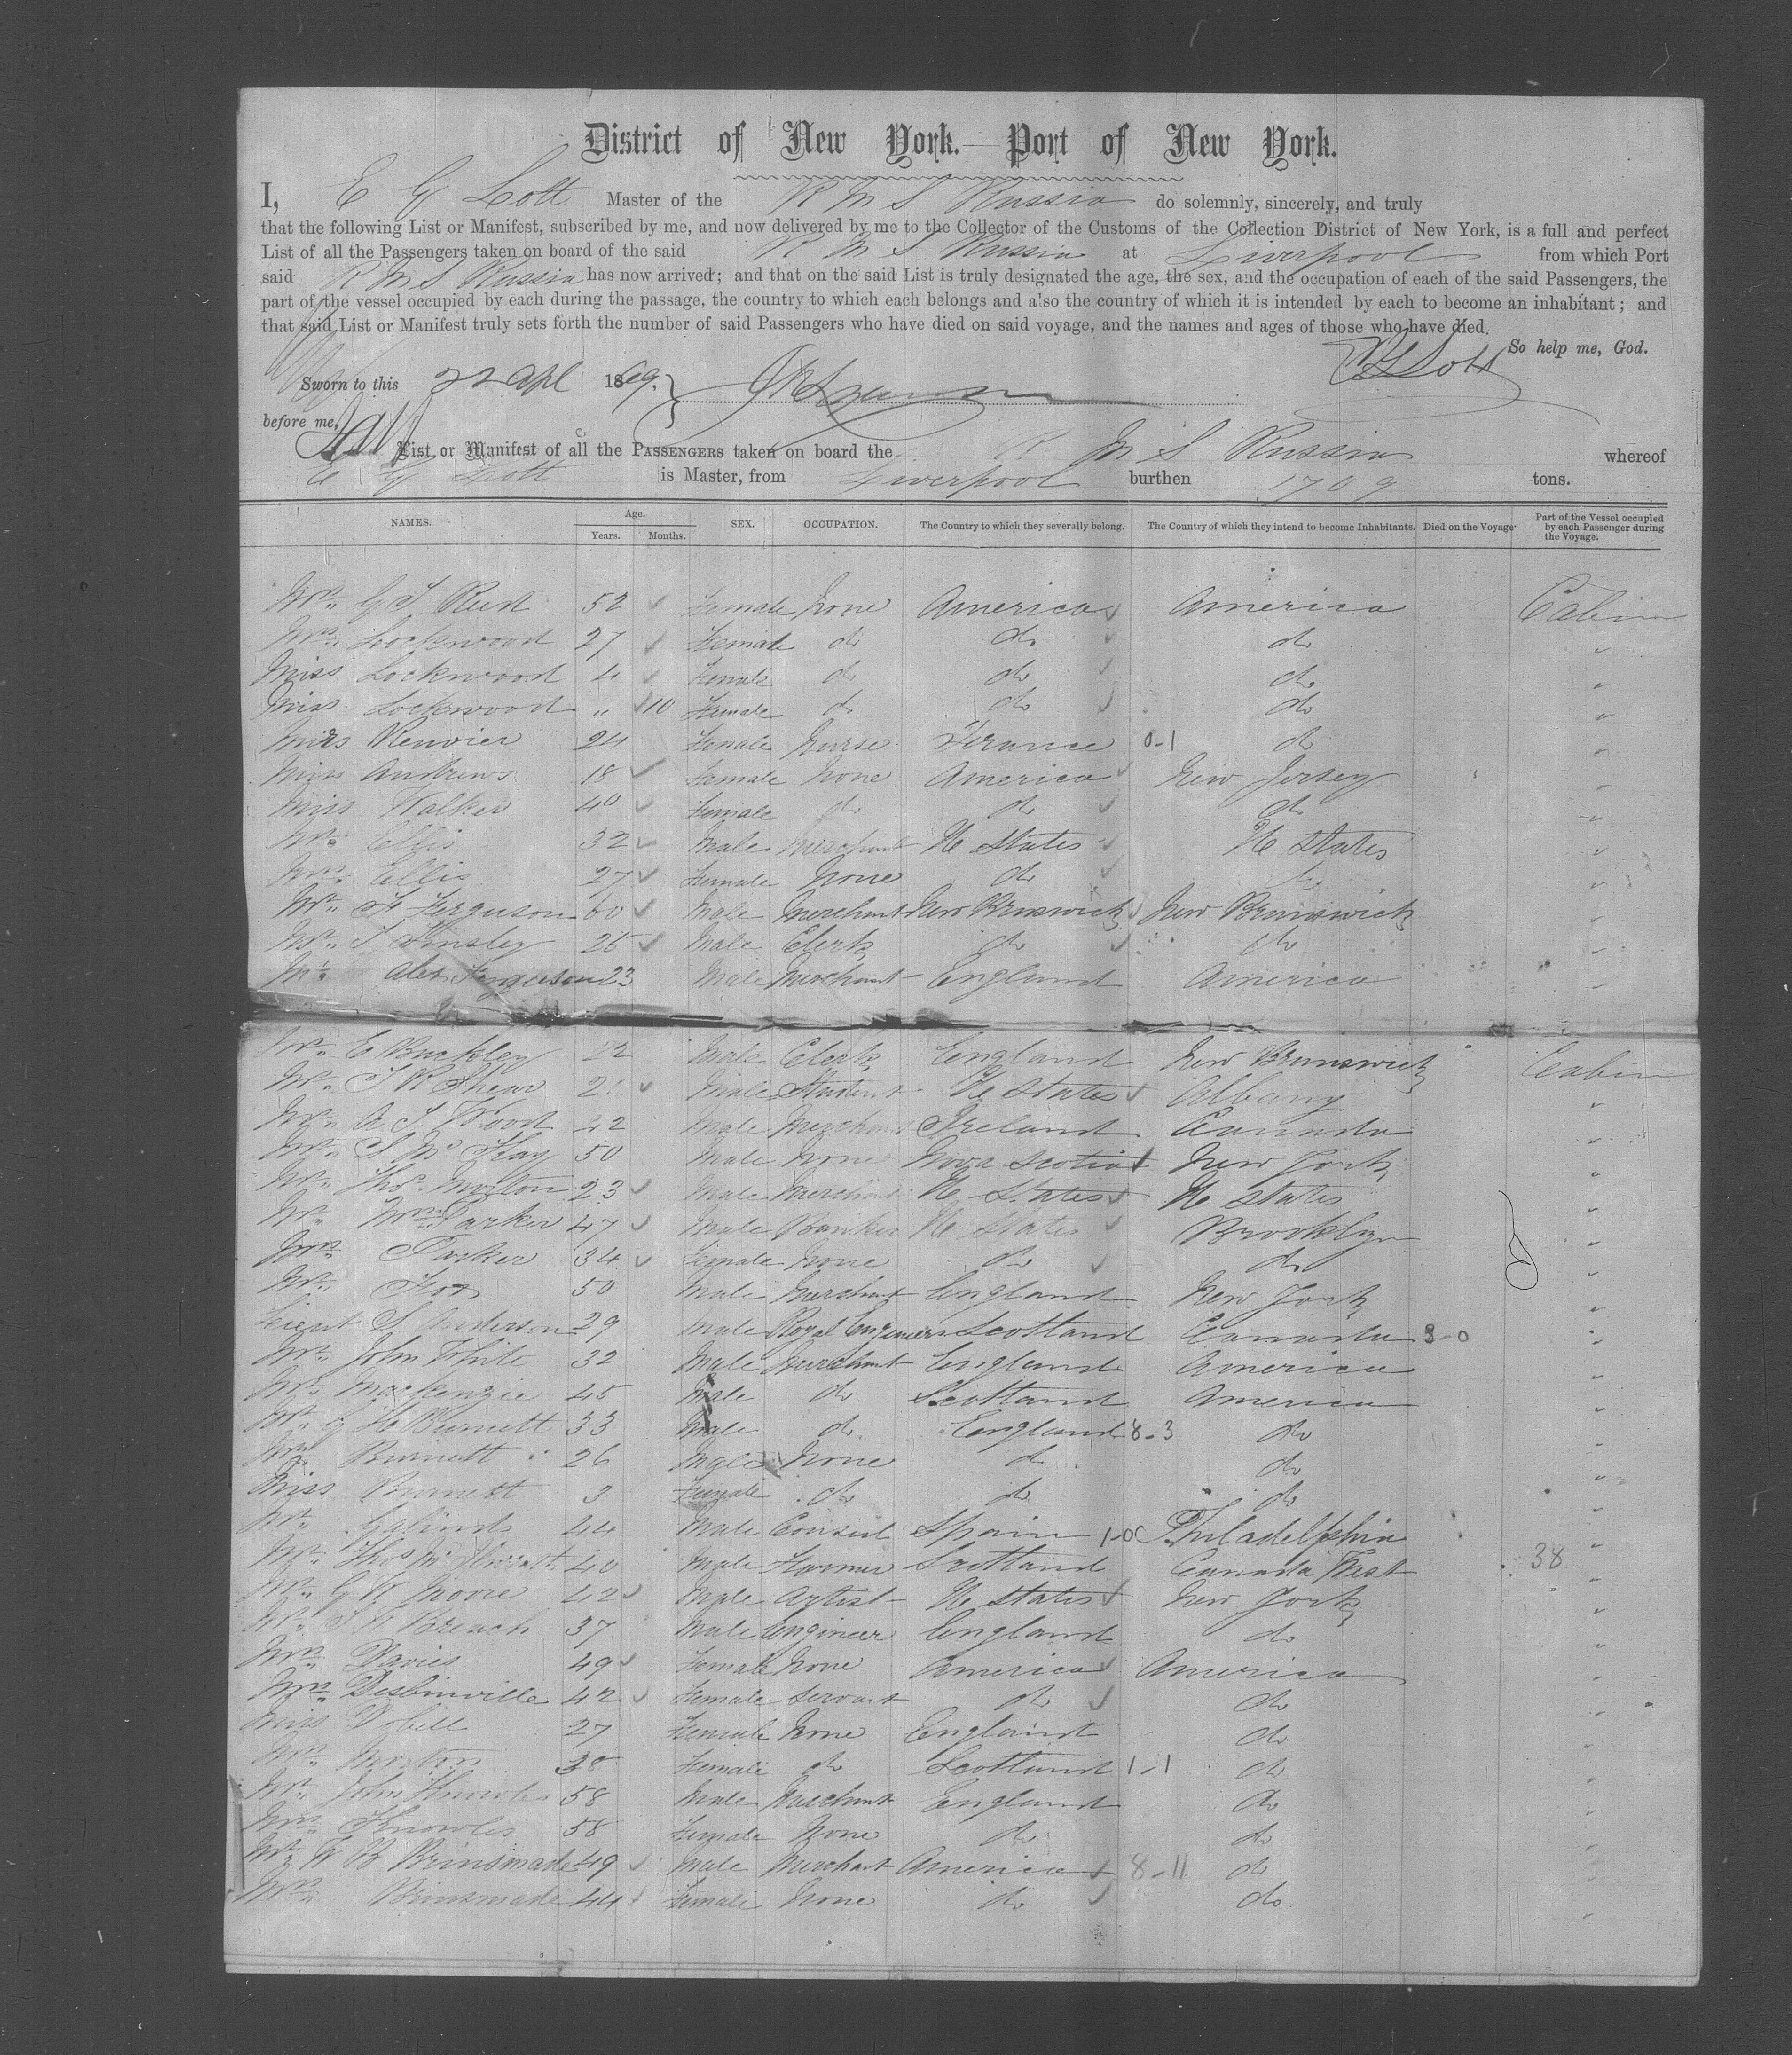 District of New York.—Port of New York.
I, E G Lott Master of the R M S Russia do solemnly, sincerely, and truly
that the following List or Manifest, subscribed by me, and now delivered by me to the Collector of the Customs of the Collection District of New York, is a full and perfect
List of all the Passengers taken on board of the said R M S Russia at Liverpool from which Port
said R M S Russia has now arrived; and that on the said List is truly designated the age, the sex, and the occupation of each of the said Passengers, the
part of the vessel occupied by each during the passage, the country to which each belongs and also the country of which it is intended by each to become an inhabitant; and
that said List or Manifest truly sets forth the number of said Passengers who have died on said voyage, and the names and ages of those who have died.
So help me, God.
E G Lott
Sworn to this 22 Apl 1869.
before me,
List or Manifest of all the PASSENGERS taken on board the R M S Russia whereof
E G Lott is Master, from Liverpool burthen 1709 tons.
NAMES. Age. Years. Months. SEX. OCCUPATION. The Country to which they severally belong. The Country of which they intend to become Inhabitants. Died on the Voyage Part of the Vessel occupied by each Passenger during the Voyage.
G T 52 Female None America America Cabin
Mrs. Lockwood 27 Female do do do "
Miss Lockwood 4 Female do do do "
Miss Lockwood " 10 Female do do do "
Miss Renvier 24 Female Nurse France 0-1 do "
Miss Andrews 18 Female None America New Jersey "
Miss Walker 40 Female do do do "
Mr. Ellis 32 Male Merchant U States U States "
Mrs. Ellis 27 Female None do do "
Mr. F Ferguson 60 Male Merchant New Brunswick New Brunswick "
Mr. T Kinsley 25 Male Clerk do do "
Mr. Alex Ferguson 23 Male Merchant England America "
Mr. E Buckley 22 Male Clerk England New Brunswick Cabin
Mr. T R Shear 21 Male Student U States Albany "
Mr. A T Wood 42 Male Merchant Ireland Canada "
Mr. S McKay 50 Male None Nova Scotia New York "
Mr. Thos. Morton 23 Male Merchant U States U States "
Mr. Wm. Parker 47 Male Banker U States Brooklyn "
Mrs. Parker 34 Female None do do "
Mr. Fox 50 Male Merchant England New York "
Lieut S Anderson 29 Male Royal Engineers Scotland Canada 3-0 "
Mr. John White 32 Male Merchant England America "
Mr. Mackenzie 45 Male do Scotland America "
Mr. G H Burnett 33 Male do England 8-3 do "
Burnett 26 Male None do do "
Miss Burnett 3 Female do do do "
Mr. Galindo 44 Male Consul Spain 1-0 Philadelphia "
Mr. Thos 40 Male Farmer Scotland Canada West 38
Mr. G W Moore 42 Male Artist U States New York "
Mr. T W Breach 37 Male Engineer England do "
Mrs. Davies 49 Female None America America "
Mrs. Desbinville 42 Female Servant do do "
Miss Dobell 27 Female None England do "
Mrs. Morton 38 Female do Scotland 1-1 do "
Mr. John Knowles 58 Male Merchant England do "
Mrs. Knowles 58 Female None do do "
Mr. W B Brinsmade 49 Male Merchant America 8-11 do "
Mrs. Brinsmade 44 Female None do do "